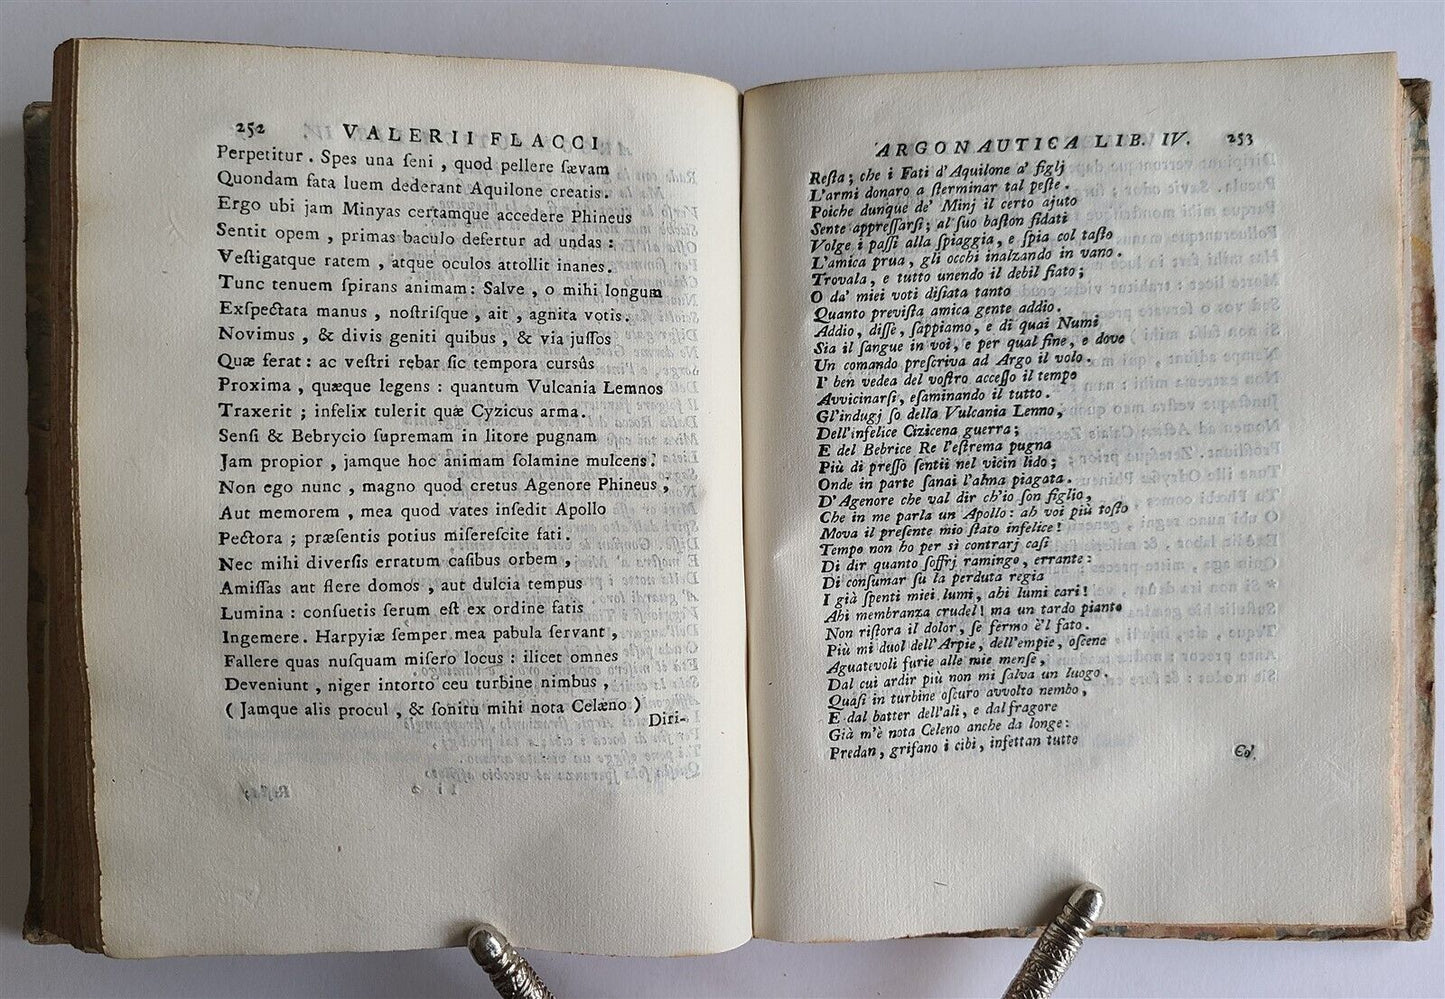 252 VALERII FLACCI
Perpetitur. Spes una ſeni, quod pellere ſævam
Quondam fata luem dederant Aquilone creatis.
Ergo ubi jam Minyas certamque accedere Phineus
Sentit opem, primas baculo defertur ad undas:
Veſtigatque ratem, atque oculos attollit inanes.
Tunc tenuem ſpirans animam: Salve, o mihi longum
Exſpectata manus, noſtriſque, ait, agnita votis.
Novimus, & divis geniti quibus, & via juſſos
Quæ ferat: ac veſtri rebar ſic tempora curſûs
Proxima, quæque legens: quantum Vulcania Lemnos
Traxerit; infelix tulerit quæ Cyzicus arma.
Senſi & Bebrycio ſupremam in litore pugnam
Jam propior, jamque hoc animam ſolamine mulcens.
Non ego nunc, magno quod cretus Agenore Phineus,
Aut memorem, mea quod vates inſedit Apollo
Pectora; præſentis potius miſereſcite fati.
Nec mihi diverſis erratum caſibus orbem,
Amiſſas aut flere domos, aut dulcia tempus
Lumina: conſuetis ſerum eſt ex ordine fatis
Ingemere. Harpyiæ ſemper mea pabula ſervant,
Fallere quas nuſquam miſero locus: ilicet omnes
Deveniunt, niger intorto ceu turbine nimbus,
(Jamque alis procul, & ſonitu mihi nota Celæno)
Diri-
ARGONAUTICA LIB. IV. 253
Reſta; che i Fati d'Aquilone a' figlj
L'armi donaro a ſterminar tal peſte.
Poiche dunque de' Minj il certo ajuto
Sente appreſſarſi; al ſuo baſton fidati
Volge i paſſi alla ſpiaggia, e ſpia col taſto
L'amica prua, gli occhi inalzando in vano.
Trovala, e tutto unendo il debil fiato;
O da' miei voti diſiata tanto
Quanto previſta amica gente addio.
Addio, diſſe, ſappiamo, e di quai Numi
Sia il ſangue in voi, e per qual fine, e dove
Un comando preſcriva ad Argo il volo.
I' ben vedea del voſtro acceſſo il tempo
Avvicinarſi, eſaminando il tutto.
Gl'indugj ſo della Vulcania Lenno,
Dell'infelice Cizicena guerra;
E del Bebrice Re l'eſtrema pugna
Più di preſſo ſentii nel vicin lido;
Onde in parte ſanai l'alma piagata.
D'Agenore che val dir ch'io ſon figlio,
Che in me parla un Apollo: ah voi più toſto
Mova il preſente mio ſtato infelice!
Tempo non ho per sì contrarj caſi
Di dir quanto ſoffrj ramingo, errante:
Di conſumar ſu la perduta regia
I già ſpenti miei lumi, ahi lumi cari!
Ahi membranza crudel! ma un tardo pianto
Non riſtora il dolor, ſe fermo è'l fato.
Più mi duol dell'Arpie, dell'empie, oſcene
Aguatevoli furie alle mie menſe,
Dal cui ardir più non mi ſalva un luogo,
Quaſi in turbine oſcuro avvolto nembo,
E dal batter dell'ali, e dal fragore
Già m'è nota Celeno anche da longe:
Predan, grifano i cibi, infettan tutto
Co'